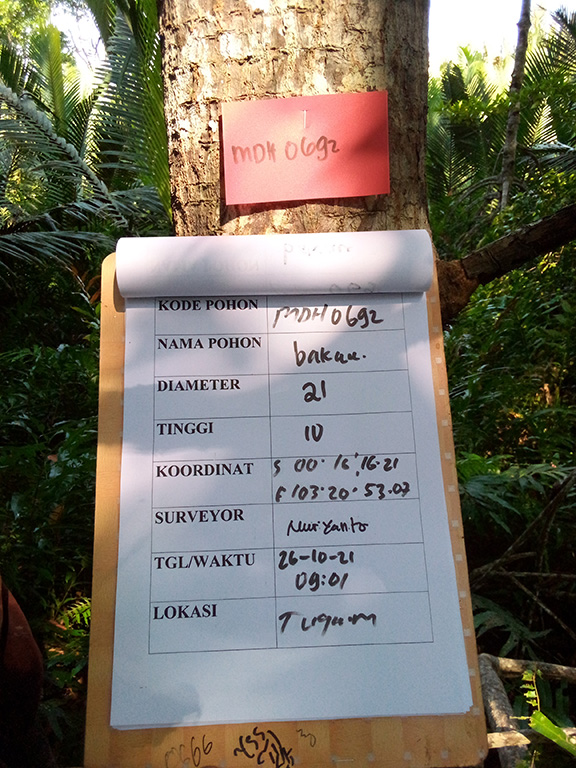 MDH 0692
KODE POHON MDH0692
NAMA POHON bakau.
DIAMETER 21
TINGGI 10
KOORDINAT S 00. 16. 16.21
E 103.20.53.07
SURVEYOR Nuryanto
TGL/WAKTU 26-10-21
09:01
LOKASI